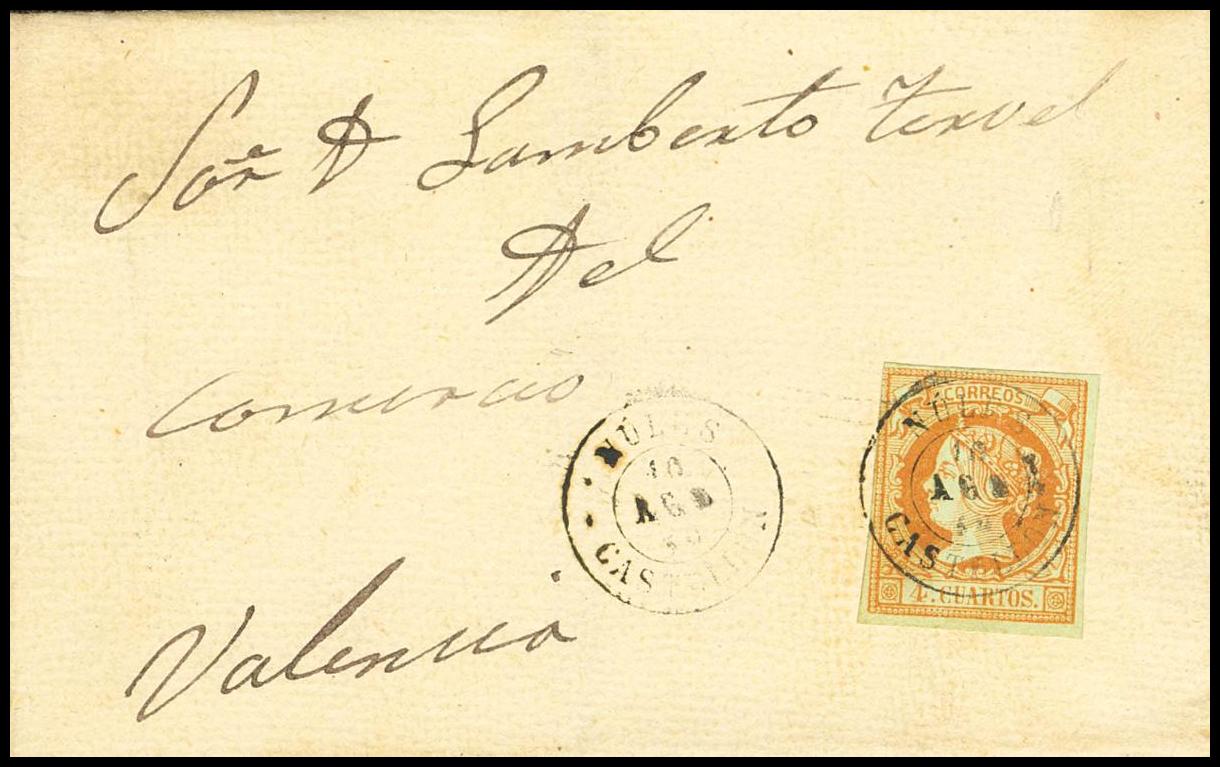 Sor D Lamberto Teruel
Del
Comercio
Valencia
NULES
10
AGO
CASTELLON
CORREOS
NULES
10
AGO
CASTELLON
4 CUARTOS.